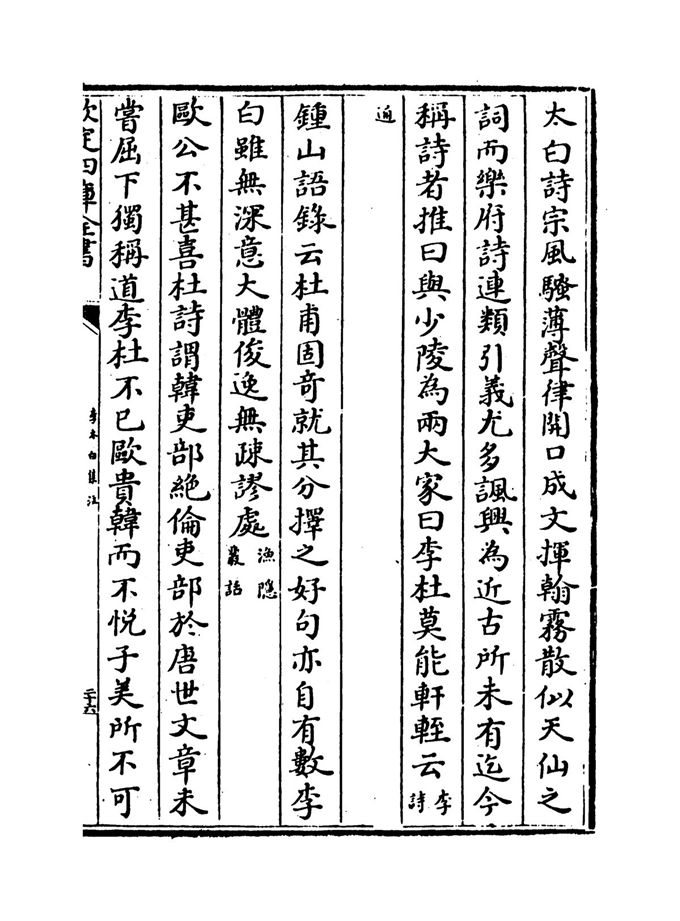 太白詩宗風騷薄聲律開口成文揮翰霧散似天仙之
詞而樂府詩連類引義尤多諷興為近古所未有迄今
稱詩者推曰與少陵為兩大家曰李杜莫能軒輊云李詩
通
鍾山語錄云杜甫固奇就其分擇之好句亦自有數李
白雖無深意大體俊逸無疎謬處漁隱叢話
歐公不甚喜杜詩謂韓吏部絕倫吏部於唐世文章未
嘗屈下獨稱道李杜不已歐貴韓而不悅子美所不可
欽定四庫全書
李太白集注
二十六